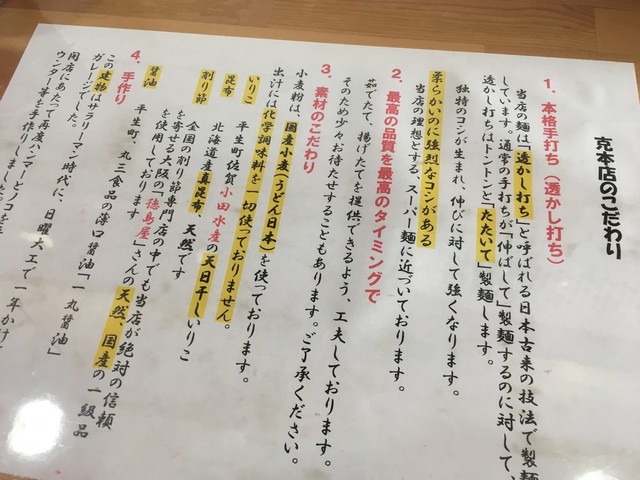 克本店のこだわり
1.本格手打ち(透かし打ち)
当店の麺は「透かし打ち」と呼ばれる日本古来の技法で製麺
しています。通常の手打ちが「伸ばして」製麺するのに対して、
透かし打ちはトントンと「たたいて」製麺します。
独特のコシが生まれ、伸びに対して強くなります。
柔らかいのに強烈なコシがある
当店の理想とする、スーパー麺に近づいております。
2.最高の品質を最高のタイミングで
茹でたて、揚げたてを提供できるよう、工夫しております。
そのため少々お待たせすることもあります。ご了承ください。
3.素材のこだわり
小麦粉は、国産小麦(うどん日本)を使っております。
出汁には化学調味料を一切使っておりません。
いりこ 平生町佐賀小田水産の天日干しいりこ
昆布 北海道産真昆布、天然です
削り節 全国の削り節専門店の中でも当店が絶対の信頼
を寄せる大阪の「徳島屋」さんの天然、国産の一級品
を使用しております
醤油 平生町、丸三食品の薄口醤油「一丸醤油」
4.手作り
この建物はサラリーマン時代に、日曜大工で一年かけ
ガレージでした。
開店にあたって再度ハンマーとノコ
ウンター等を手作りしました